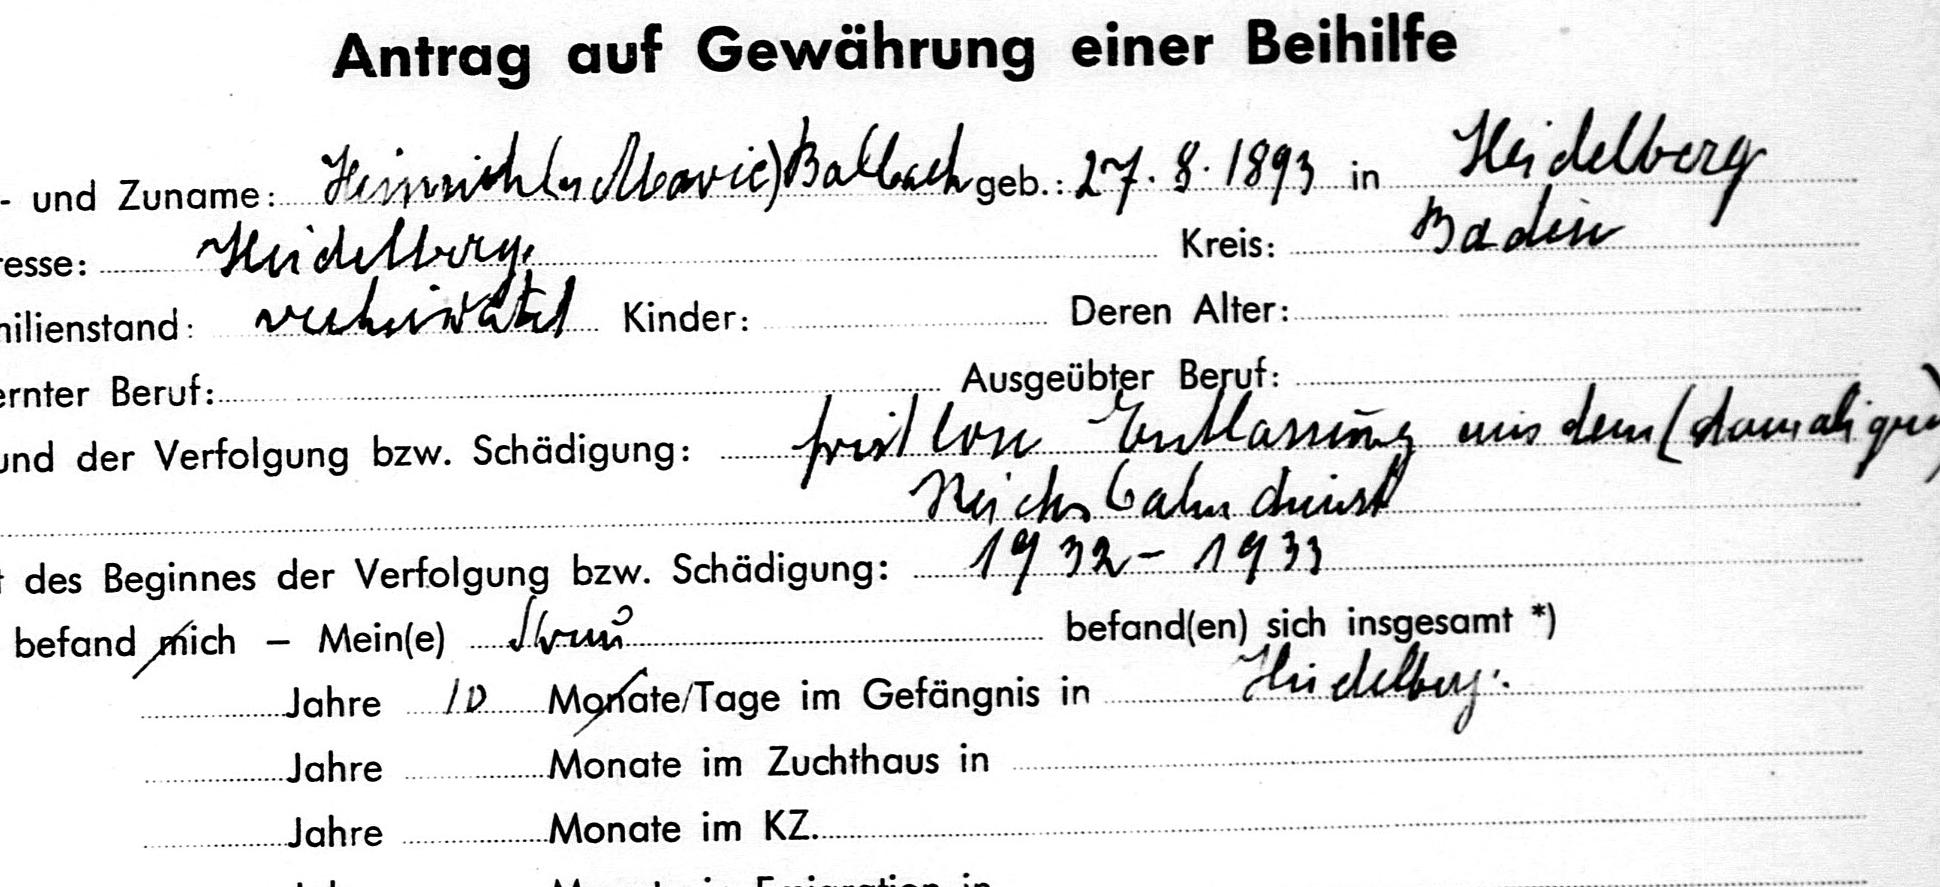 Antrag auf Gewährung einer Beihilfe
- und Zuname: Heinrich (u Marie) Balbach geb.: 27. 8. 1893 in Heidelberg
esse: Heidelberg. Kreis: Baden
ilienstand: verheiratet Kinder: Deren Alter:
ernter Beruf: Ausgeübter Beruf:
und der Verfolgung bzw. Schädigung: fristlose Entlassung aus dem (damaligen)
Reichsbahndienst
des Beginnes der Verfolgung bzw. Schädigung: 1932 - 1933
befand mich – Mein(e) Frau befand(en) sich insgesamt *)
Jahre 10 Monate/Tage im Gefängnis in Heidelberg.
Jahre Monate im Zuchthaus in
Jahre Monate im KZ.